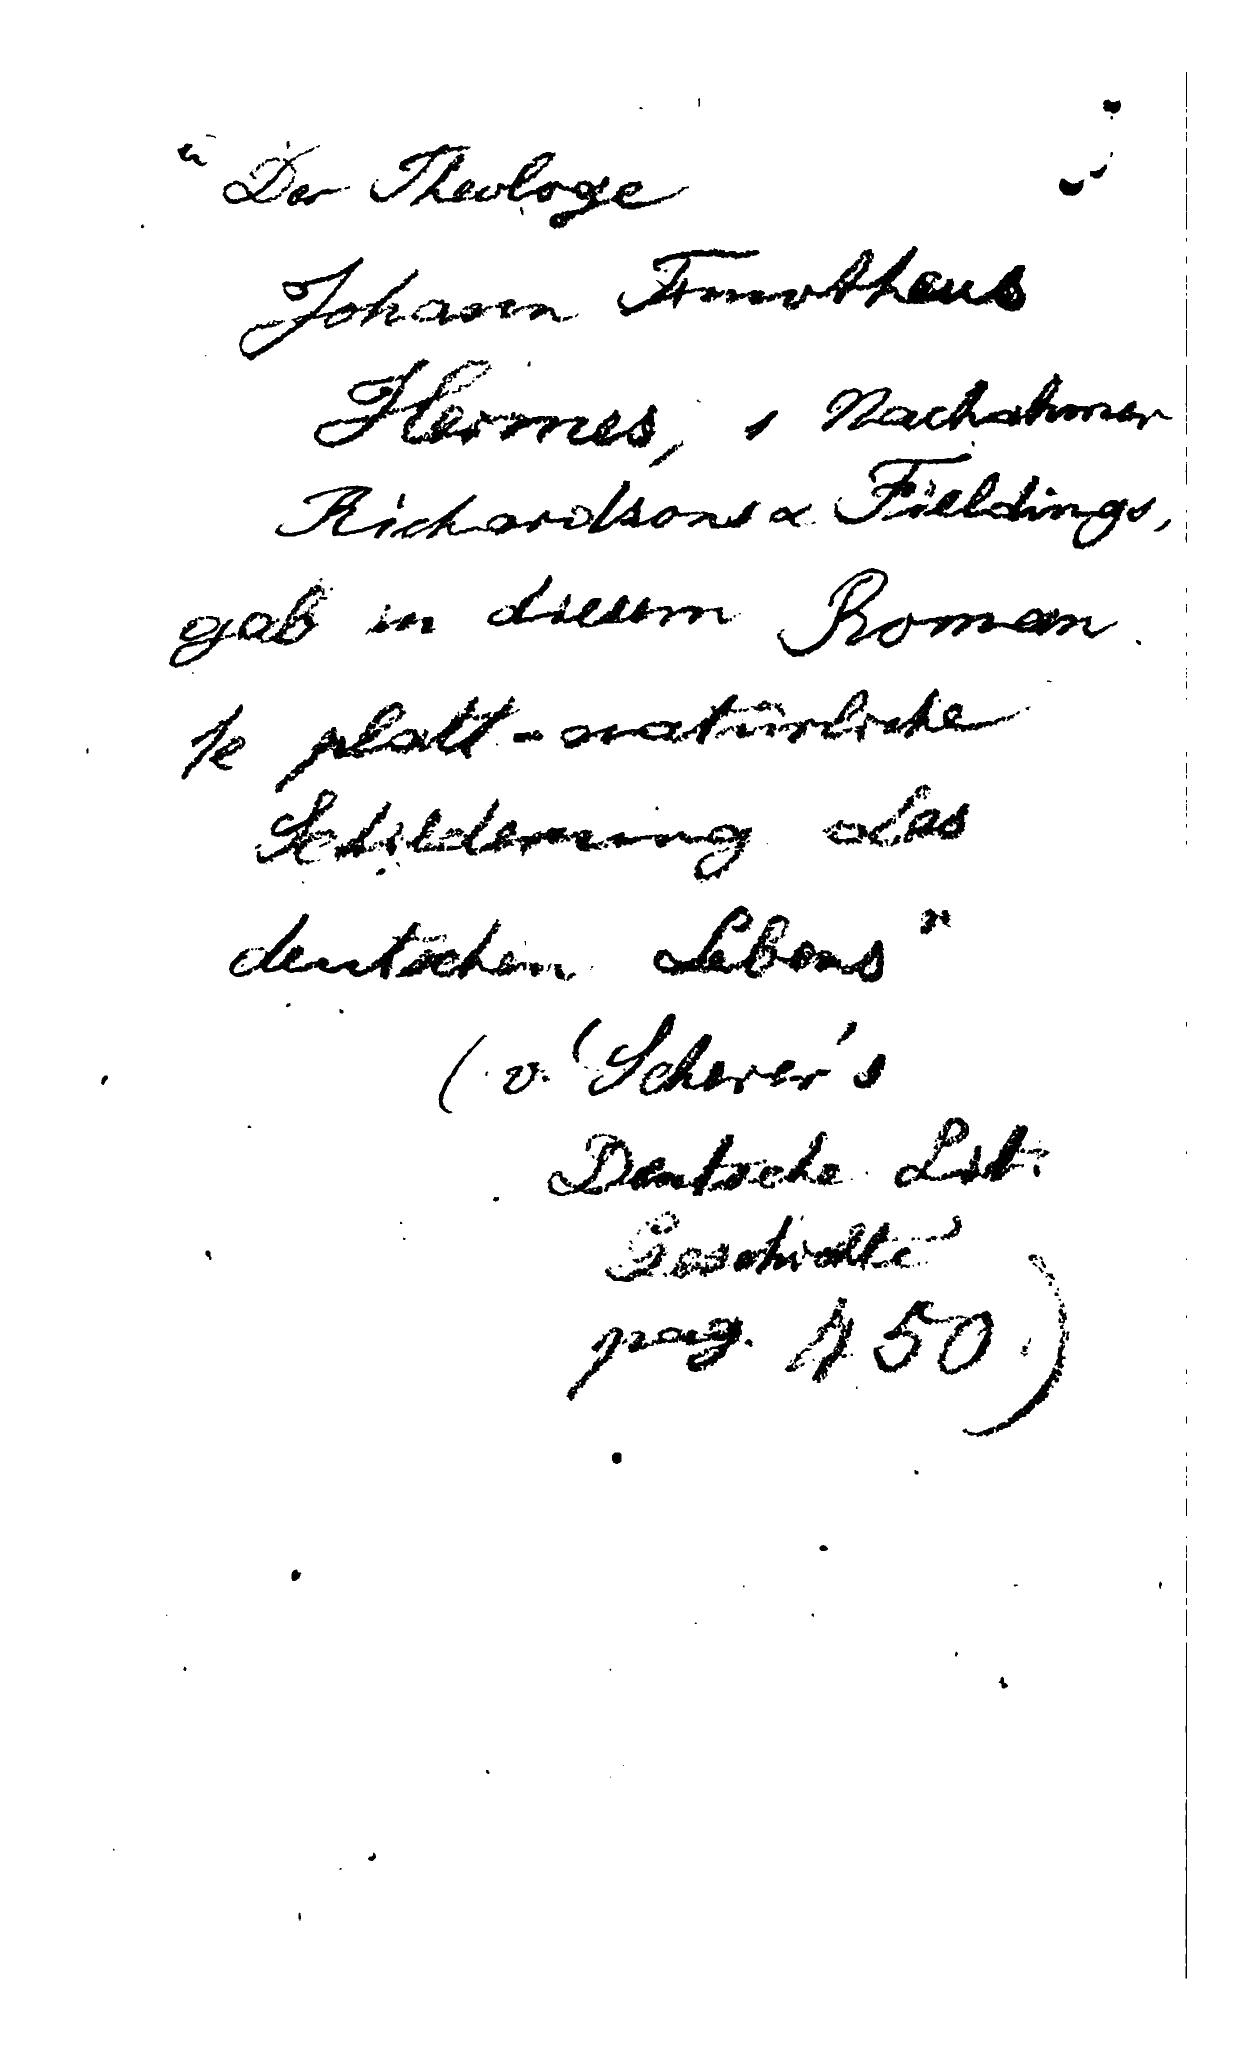 "Der Theologe
Johann Timotheus
Hermes, 1 Nachahmer
Richardsons & Fieldings,
gab in diesem Roman
1e platt-natürliche
Schilderung des
deutschen Lebens"
(v. Scherer's
Deutsche Lit.
Geschichte
pag. 450.)